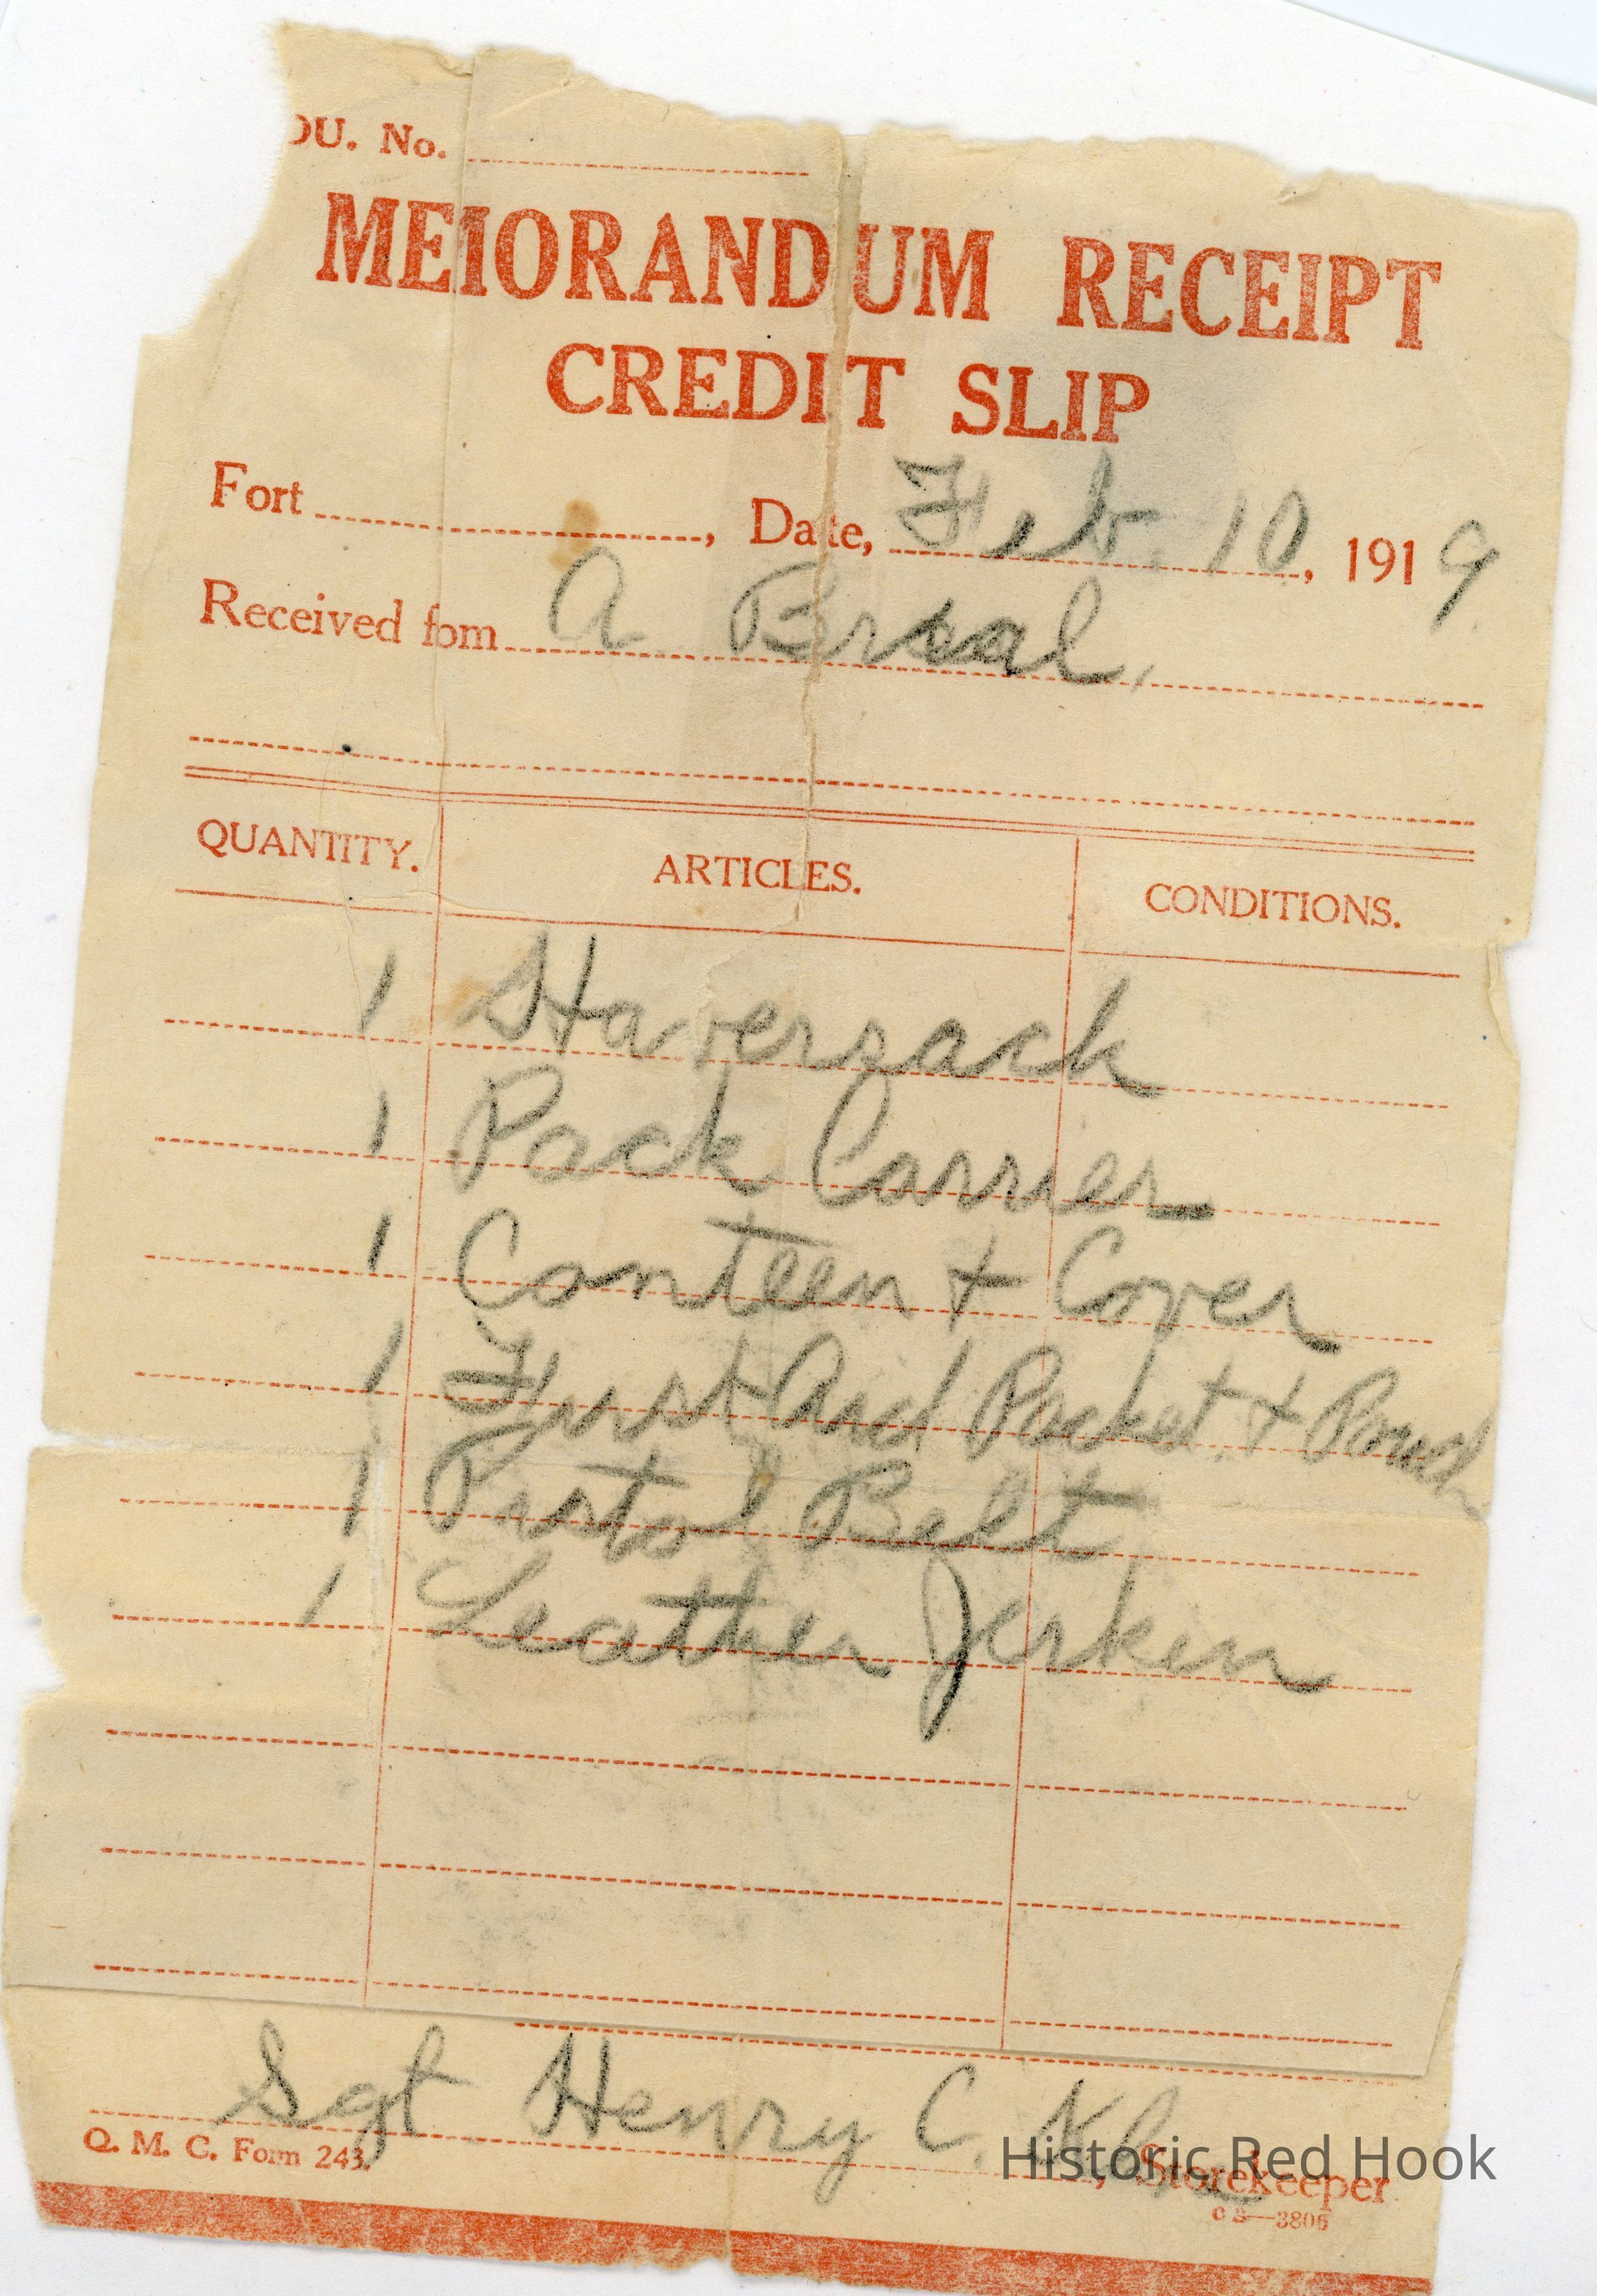 OU. No.
MEIORANDUM RECEIPT
CREDIT SLIP
Fort , Date, Feb. 10, 1919
Received fom A Braal.
QUANTITY. ARTICLES. CONDITIONS.
1 Haverzack
1 Pack Carrier
1 Canteen + Cover
1 First Aid Packet + Pouch
1 Pistol Belt
1 Leather Jerkin
Sgt Henry C.
Historic Red Hook
Q. M. C. Form 243. , Storekeeper
3806